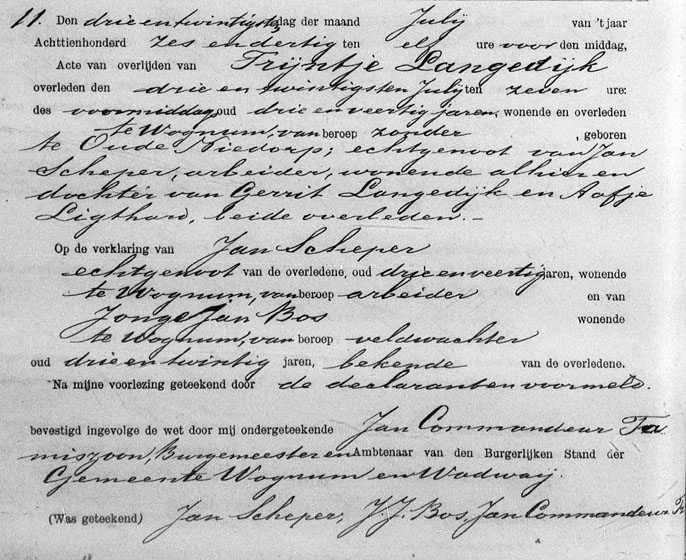 11. Den drie en twintigste dag der maand Julij van 't jaar
Achttienhonderd zes en dertig ten elf ure voor den middag,
Acte van overlijden van Trijntje Langedijk
overleden den drie en twintigsten Julij ten zeven ure:
des voormiddag, oud drie en veertig jaren, wonende en overleden
te Wognum, van beroep zonder , geboren
te Oude Niedorp; echtgenoot van Jan
Scheper, arbeider, wonende alhier en
dochter van Gerrit Langedijk en Aafje
Ligthard, beide overleden. –
Op de verklaring van Jan Scheper
echtgenoot van de overledene, oud drie en veertig jaren, wonende
te Wognum, van beroep arbeider en van
Jonge Jan Bos wonende
te Wognum, van beroep veldwachter
oud drie en twintig jaren, bekende van de overledene.
Na mijne voorlezing geteekend door de declaranten voormeld.
bevestigd ingevolge de wet door mij ondergeteekende Jan Commandeur Ta
miszoon, Burgemeester en Ambtenaar van den Burgerlijken Stand der
Gemeente Wognum en Wadway.
(Was geteekend) Jan Scheper, J.J. Bos, Jan Commandeur